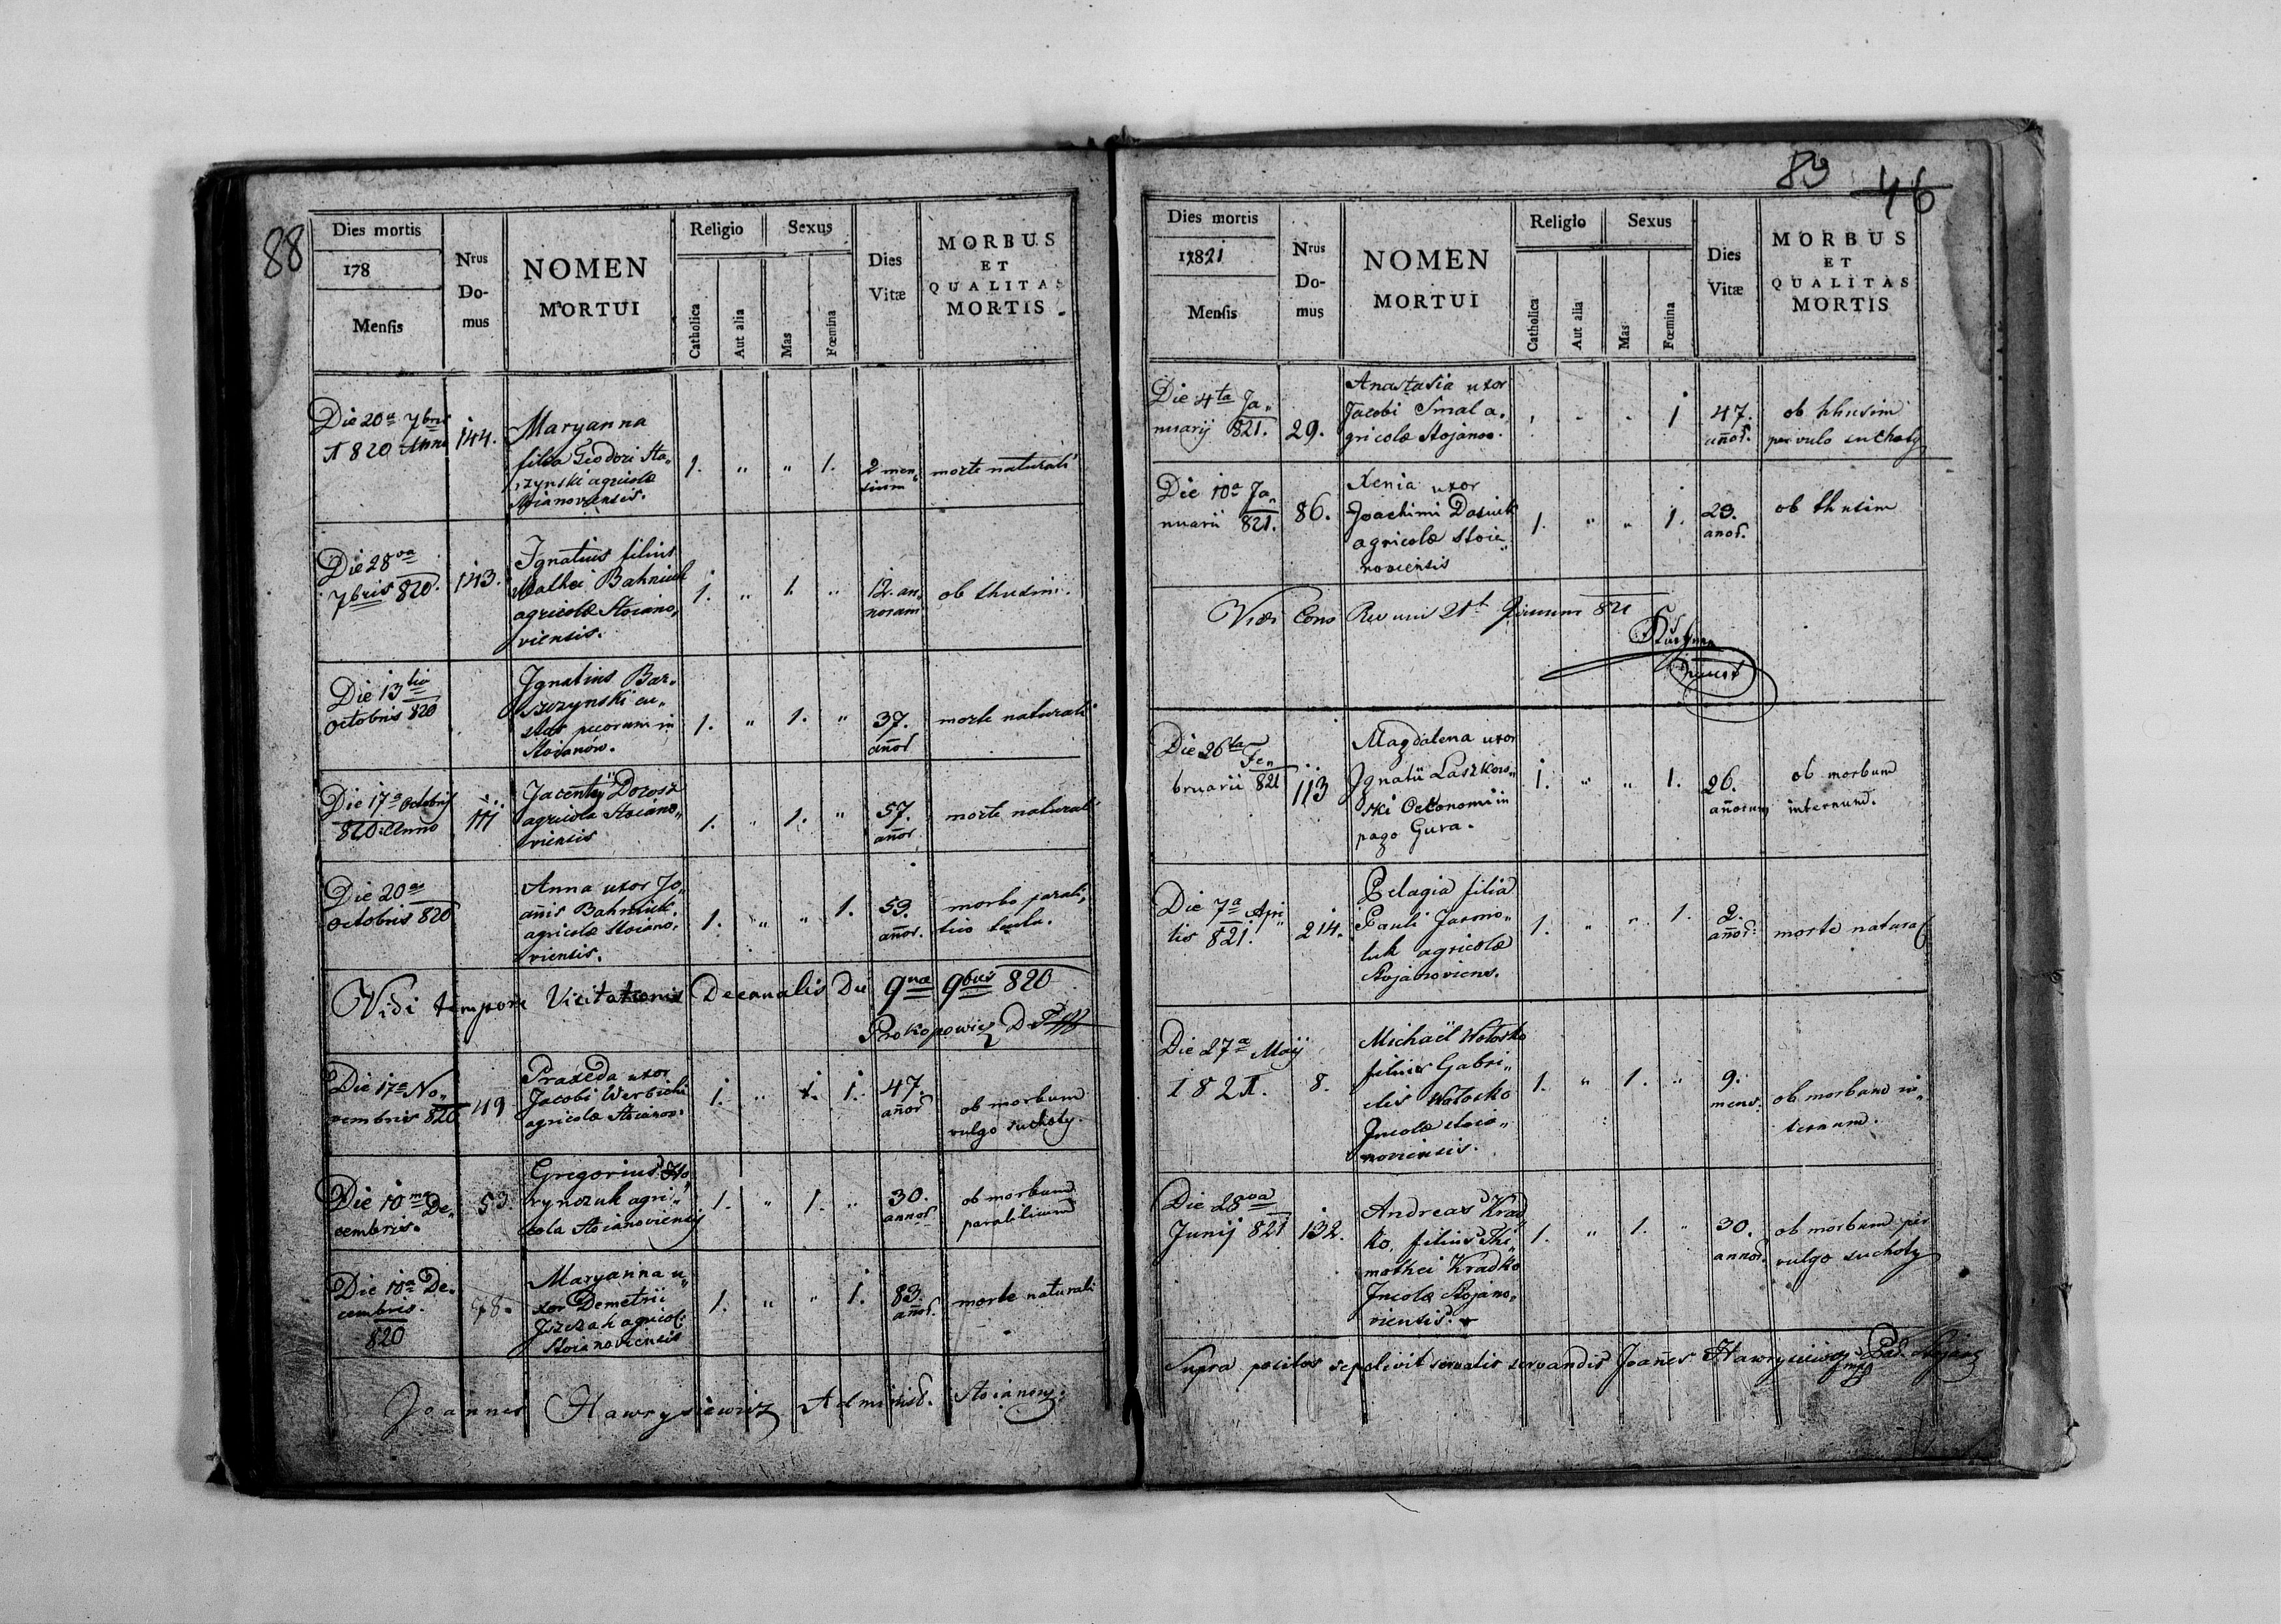 88
Dies mortis
178
Mensis
Nrus
Do-
mus
NOMEN
MORTUI
Religio
Catholica
Aut alia
Sexus
Mas
Fœmina
Dies
Vitæ
MORBUS
ET
QUALITAS
MORTIS
Die 20a 7bris
1820 Anni
144.
Maryanna
filia Teodori Sta„
rzynski agricolæ
Stoianoviensis.
1. „ „ 1.
2 men„
sium
morte naturali
Die 28va
7bris 820.
143.
Ignatius filius
Mathei Bahniuk
agricolæ Stoiano„
viensis.
1. „ 1. „
12. an„
norum
ob thusim.
Die 13tia
Octobris 820
Ignatius Bar„
szczynski cu„
stos pecorum in
Stoianow.
1. „ 1. „
37.
añor
morte naturali
Die 17a Octobris
820. Anno
111
Jacenty Dorosz
agricola Stoiano„
viensis
1. „ 1. „
57.
añor
morte naturali
Die 20a
Octobris 820
Anna uxor Jo„
añis Bahniuk
agricolæ Stoiano„
viensis.
1. „ „ 1.
59.
añor.
morbo parali„
tico
Vidi tempore Visitationis Decanalis Die 9na 9bris 820
Prokopowicz
Die 17a No„
vembris 820
49
Praxeda uxor
Jacobi Werbicki
agricolæ Stoianov.
1. „ 1. 1.
47.
añor
ob morbum
vulgo suchoty.
Die 10ma De„
cembris.
53.
Gregorius Ho„
rynczuk agri„
cola Stoianoviensis
1. „ 1. „
30.
annor
ob morbum
paraliticum
Die 10a De„
cembris.
820
78.
Maryanna u„
xor Demetrii
Jszczah agricol.
Stoianoviensis
1. „ „ 1.
83.
añor.
morte naturali
Joannes Hawrysiewicz Administ. Stoianov.
89 46
Dies mortis
1821
Mensis
Nrus
Do-
mus
NOMEN
MORTUI
Religio
Catholica
Aut alia
Sexus
Mas
Fœmina
Dies
Vitæ
MORBUS
ET
QUALITAS
MORTIS
Die 4ta Ja„
nuarij 821.
29.
Anastasia uxor
Jacobi Smal a„
gricolæ Stojanov.
1 „ „ 1
47.
añor.
ob thusim
per vulo suchoty
Die 10a Ja„
nuarii 821.
86.
Xenia uxor
Joachimi Dasiuk
agricolæ Stoia„
noviensis
1. „ „ 1.
29.
anor.
ob thusim
Vidi
821
Die 26ta Fe„
bruarii 821
113
Magdalena uxor
Ignatii Laszkow„
ski Oekonomi in
pago Gura.
1. „ „ 1.
26.
añorum
ob morbum
internum.
Die 7a Apri„
lis 821.
214.
Pelagia filia
Pauli Jarmo„
luk agricolæ
Stojanoviens.
1. „ „ 1.
2.
añor.
morte natural
Die 27a Maij
1821.
8.
Michaël Wołosko
filius Gabri„
elis Wołosko
Jncolæ Stoia„
noviensis.
1. „ 1. „
9.
mens.
ob morbum in„
ternum.
Die 28ava
Junij 821
132.
Andreas Krad„
ko, filius Thi„
mothei Kradko
Jncolæ Stojano„
viensis.
1. „ 1. „
30.
annor.
ob morbum per
vulgo suchoty
Supra positos sepelivit servatis servandis Joañes Hawrysiewicz